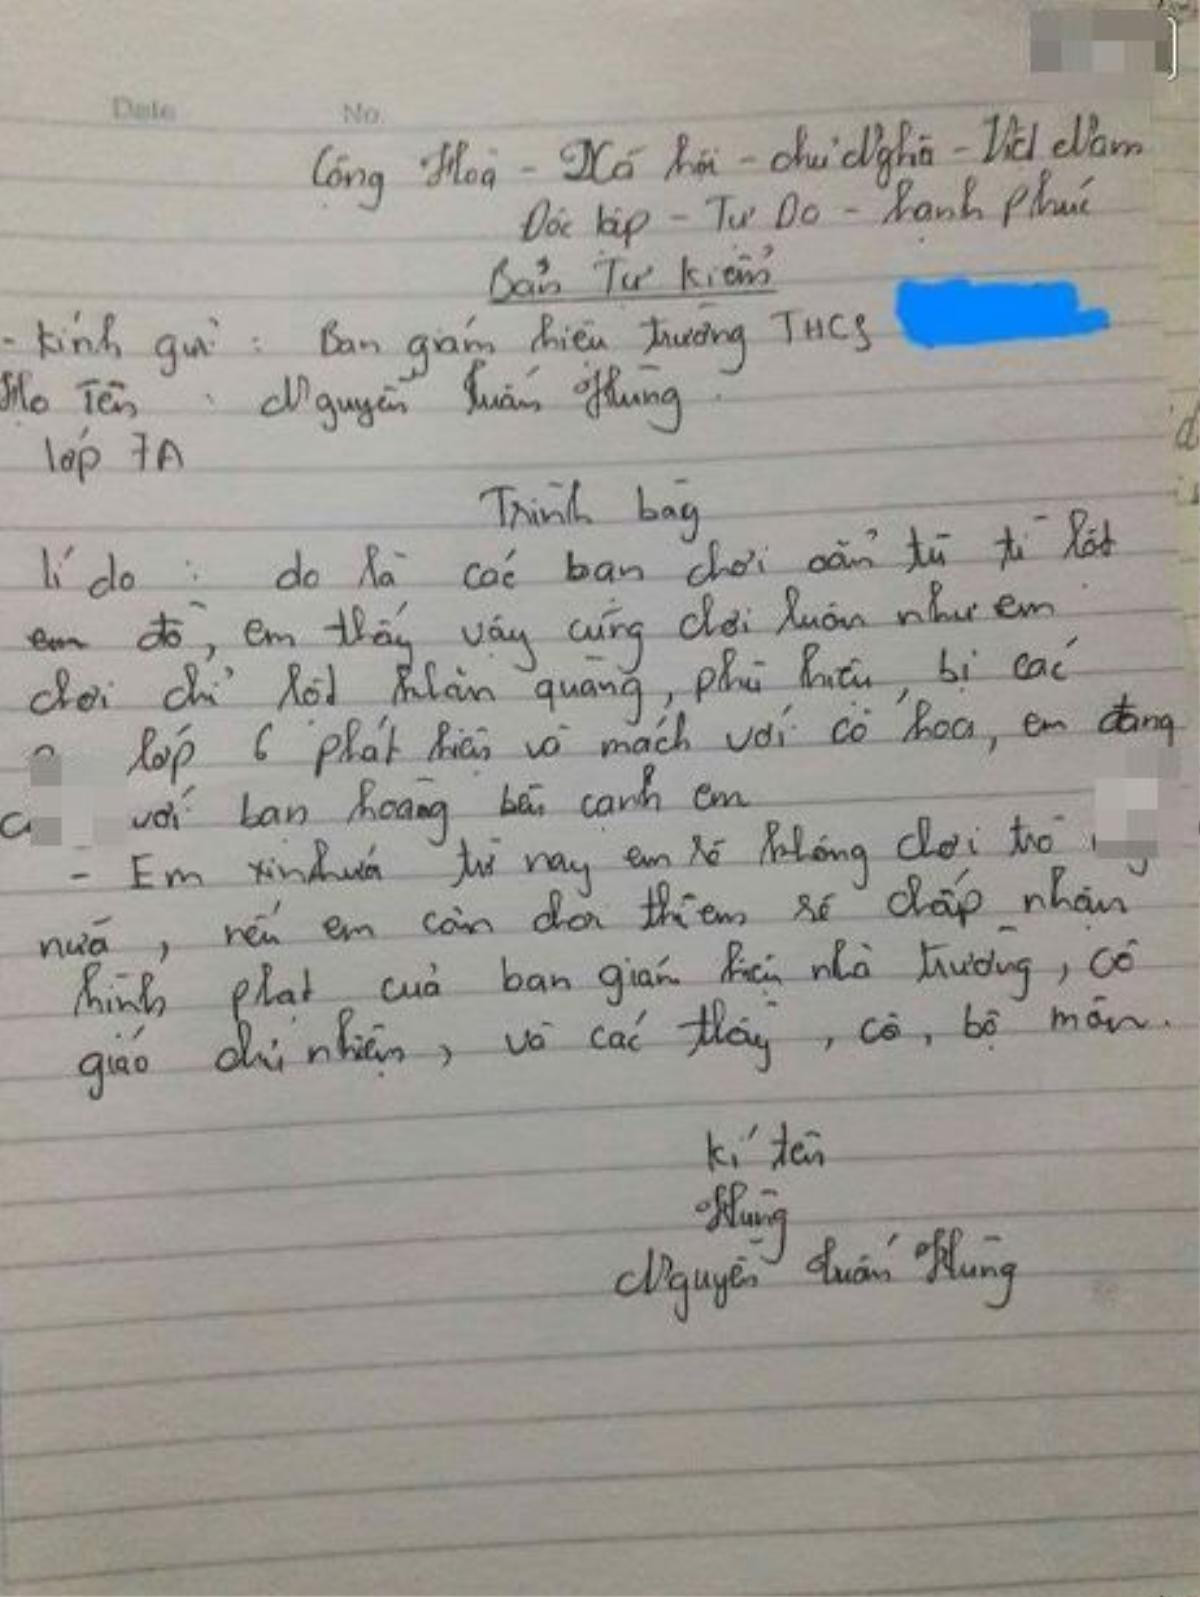 Date No.
Cộng Hoà - Xã hội - chủ Nghĩa - Việt Nam
Độc lập - Tự Do - hạnh phúc
Bản Tự kiểm
- kính gửi : Ban giám hiệu trường THCS
Họ Tên : Nguyễn Tuấn Hùng.
lớp 7A
Trình bày
lí do : do là các bạn chơi oẳn tù tì lột
em đồ, em thấy vậy cũng chơi luôn như em
chơi chỉ lột khăn quàng, phù hiệu, bị các
lớp 6 phát hiện và mách với cô hoa, em đang
với bạn hoàng bên cạnh em
- Em xin hứa từ nay em sẽ không chơi trò
nữa, nếu em còn chơi thì em sẽ chấp nhận
hình phạt của ban giám hiệu nhà trường, cô
giáo chủ nhiệm, và các thầy, cô, bộ môn.
kí tên
Hùng
Nguyễn Tuấn Hùng